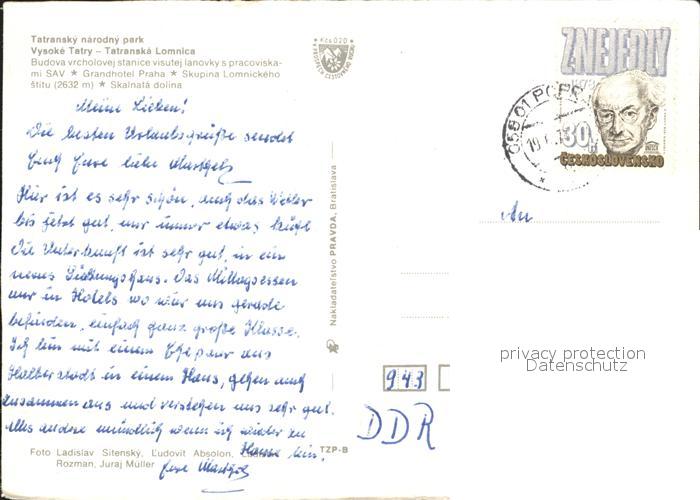 Tatranský národný park
Vysoké Tatry – Tatranská Lomnica
Budova vrcholovej stanice visutej lanovky s pracoviska-
mi SAV ★ Grandhotel Praha ★ Skupina Lomnického
štítu (2632 m) ★ Skalnatá dolina
Meine Lieben!
Die besten Urlaubsgrüße sendet
Euch Eure liebe
Hier ist es sehr schön, auch das Wetter
bis jetzt gut, nur immer etwas kühl
Die Unterkunft ist sehr gut, in ein
neues Siedlungshaus. Das Mittagessen
nur in Hotels wo wir uns gerade
befinden, einfach ganz große Klasse.
Ich bin mit einem Ehepaar aus
Halberstadt in einem Haus, gehen auch
zusammen aus und verstehen uns sehr gut.
Alles andere mündlich wenn ich wieder zu
Hause bin!
Eure
Foto Ladislav Sitenský, Ľudovít Absolon,
Rozman, Juraj Müller
TZP-B
Nakladateľstvo PRAVDA, Bratislava
Kčs 0,20
ZNEJEDLÝ
30h
UNESCO
ČESKOSLOVENSKO
058 01 POPRAD
19.
An
943
DDR
privacy protection
Datenschutz